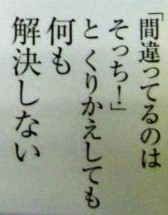 「間違ってるのは
そっち！」
とくりかえしても
何も
解決しない